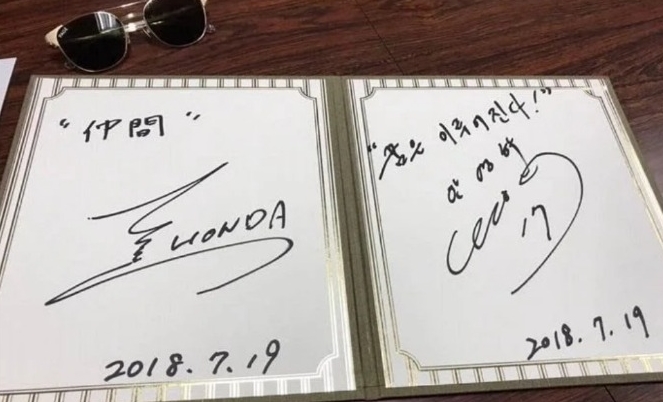 "仲間"
HONDA
2018.7.19
"꿈은 이루어진다!"
17
2018.7.19